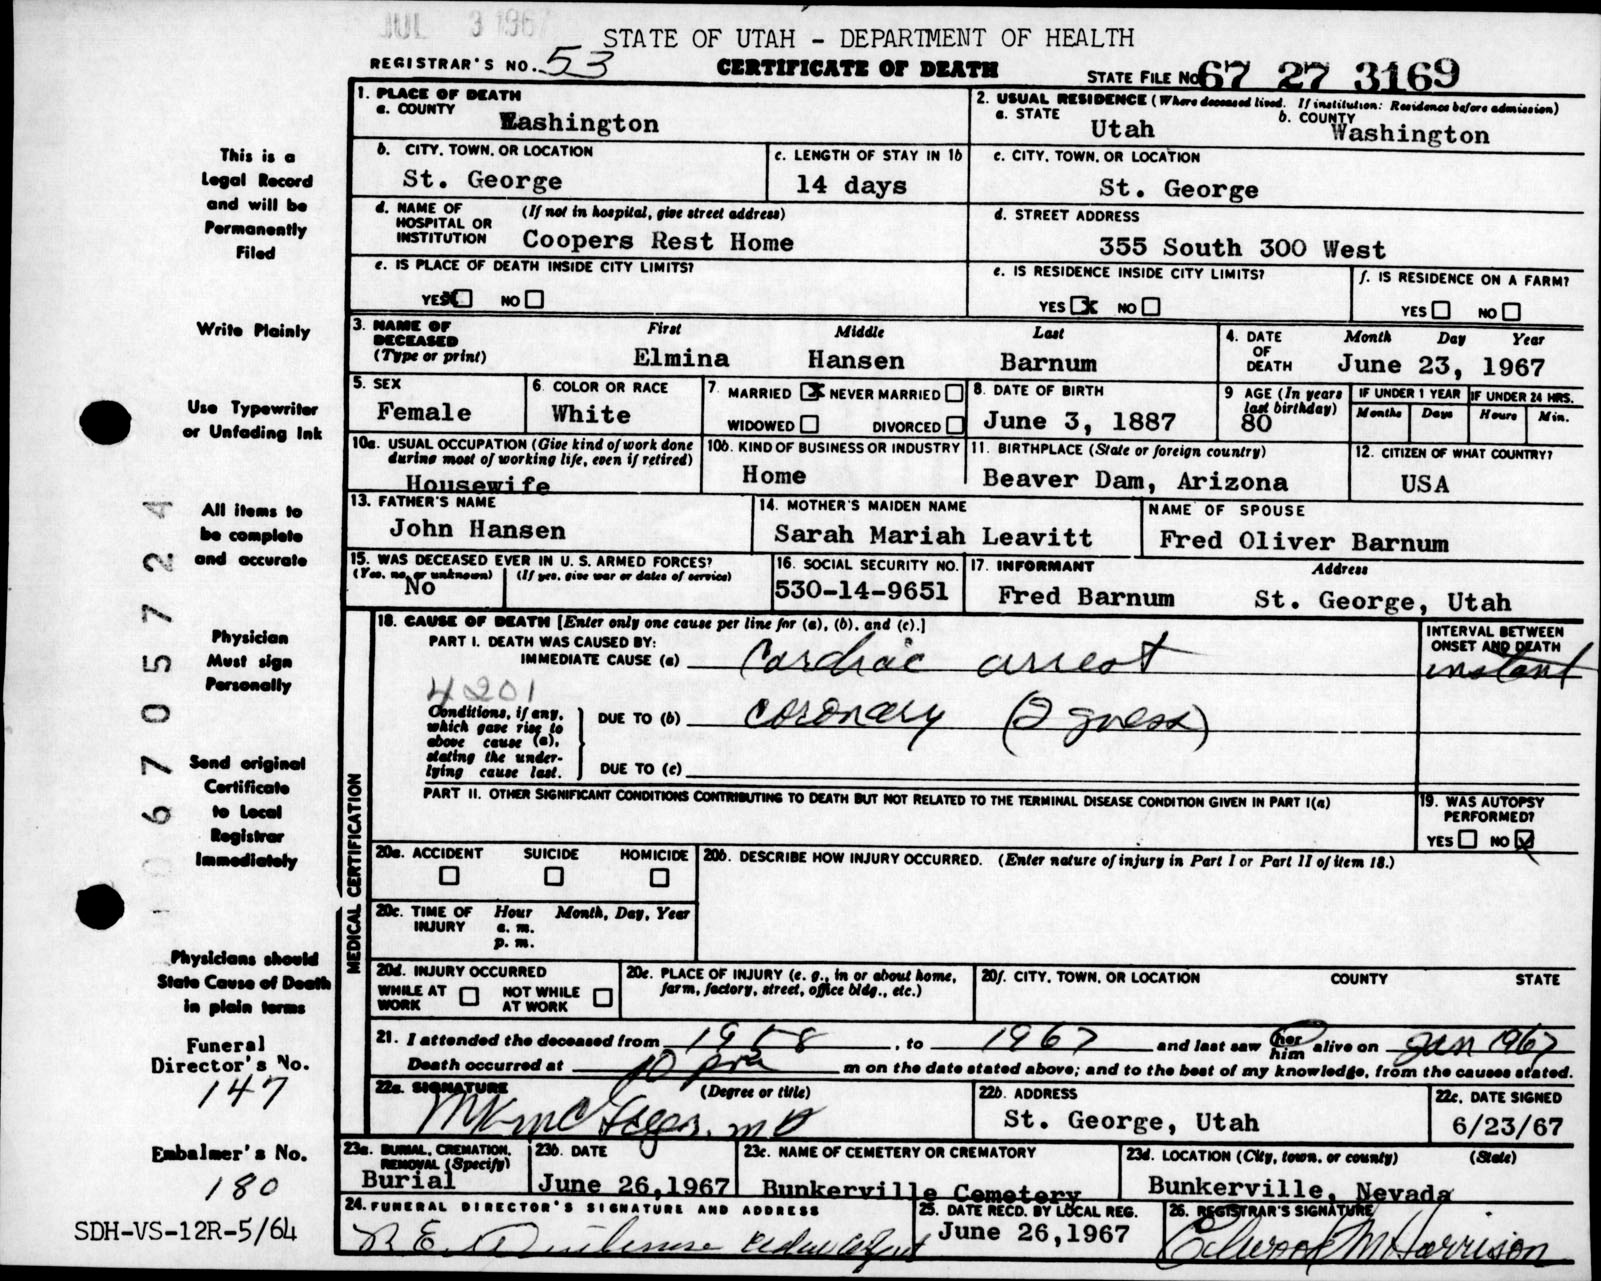 JUL 3 1967
STATE OF UTAH - DEPARTMENT OF HEALTH
REGISTRAR'S NO. 53 CERTIFICATE OF DEATH STATE FILE NO. 67 27 3169
1. PLACE OF DEATH
a. COUNTY Washington
2. USUAL RESIDENCE (Where deceased lived. If institution: Residence before admission)
a. STATE Utah b. COUNTY Washington
b. CITY, TOWN, OR LOCATION St. George
c. LENGTH OF STAY IN 1b 14 days
c. CITY, TOWN, OR LOCATION St. George
d. NAME OF HOSPITAL OR INSTITUTION (If not in hospital, give street address) Coopers Rest Home
d. STREET ADDRESS 355 South 300 West
e. IS PLACE OF DEATH INSIDE CITY LIMITS?
YES X NO
e. IS RESIDENCE INSIDE CITY LIMITS?
YES X NO
f. IS RESIDENCE ON A FARM?
YES NO
3. NAME OF DECEASED (Type or print) First Elmina Middle Hansen Last Barnum
4. DATE OF DEATH Month Day Year June 23, 1967
5. SEX Female
6. COLOR OR RACE White
7. MARRIED X NEVER MARRIED
WIDOWED DIVORCED
8. DATE OF BIRTH June 3, 1887
9 AGE (In years last birthday) 80
IF UNDER 1 YEAR Months Days
IF UNDER 24 HRS. Hours Min.
10a. USUAL OCCUPATION (Give kind of work done during most of working life, even if retired) Housewife
10b. KIND OF BUSINESS OR INDUSTRY Home
11. BIRTHPLACE (State or foreign country) Beaver Dam, Arizona
12. CITIZEN OF WHAT COUNTRY? USA
13. FATHER'S NAME John Hansen
14. MOTHER'S MAIDEN NAME Sarah Mariah Leavitt
NAME OF SPOUSE Fred Oliver Barnum
15. WAS DECEASED EVER IN U. S. ARMED FORCES?
(Yes, no, or unknown) (If yes, give war or dates of service)
No
16. SOCIAL SECURITY NO. 530-14-9651
17. INFORMANT Address
Fred Barnum St. George, Utah
MEDICAL CERTIFICATION
18. CAUSE OF DEATH [Enter only one cause per line for (a), (b), and (c).]
PART I. DEATH WAS CAUSED BY:
IMMEDIATE CAUSE (a) Cardiac arrest
INTERVAL BETWEEN ONSET AND DEATH
instant
4201
Conditions, if any, which gave rise to above cause (a), stating the underlying cause last.
DUE TO (b) coronary (I guess)
DUE TO (c)
PART II. OTHER SIGNIFICANT CONDITIONS CONTRIBUTING TO DEATH BUT NOT RELATED TO THE TERMINAL DISEASE CONDITION GIVEN IN PART I(a)
19. WAS AUTOPSY PERFORMED?
YES NO X
20a. ACCIDENT SUICIDE HOMICIDE
20b. DESCRIBE HOW INJURY OCCURRED. (Enter nature of injury in Part I or Part II of item 18.)
20c. TIME OF INJURY Hour Month, Day, Year
a. m.
p. m.
20d. INJURY OCCURRED
WHILE AT WORK NOT WHILE AT WORK
20e. PLACE OF INJURY (e. g., in or about home, farm, factory, street, office bldg., etc.)
20f. CITY, TOWN, OR LOCATION COUNTY STATE
21. I attended the deceased from 1958, to 1967 and last saw her him alive on Jan 1967
Death occurred at 10 pm m on the date stated above; and to the best of my knowledge, from the causes stated.
22a. SIGNATURE (Degree or title)
MD
22b. ADDRESS St. George, Utah
22c. DATE SIGNED 6/23/67
23a. BURIAL, CREMATION, REMOVAL (Specify) Burial
23b. DATE June 26,1967
23c. NAME OF CEMETERY OR CREMATORY Bunkerville Cemetery
23d. LOCATION (City, town, or county) (State) Bunkerville, Nevada
24. FUNERAL DIRECTOR'S SIGNATURE AND ADDRESS
25. DATE RECD. BY LOCAL REG. June 26,1967
26. REGISTRAR'S SIGNATURE Elwood M Harrison
This is a
Legal Record
and will be
Permanently
Filed
Write Plainly
Use Typewriter
or Unfading Ink
All items to
be complete
and accurate
Physician
Must sign
Personally
Send original
Certificate
to Local
Registrar
Immediately
Physicians should
State Cause of Death
in plain terms
Funeral
Director's No.
147
Embalmer's No.
180
SDH-VS-12R-5/64
106705724